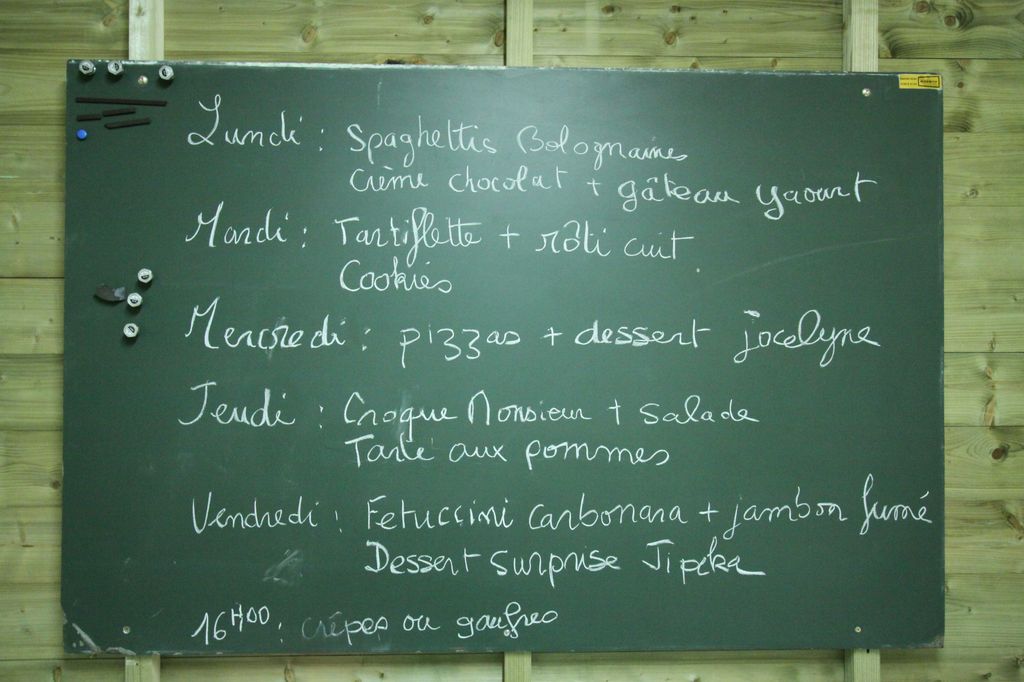 Lundi : Spaghettis Bolognaises
Crème chocolat + gâteau yaourt
Mardi : Tartiflette + rôti cuit
Cookies
Mercredi : pizzas + dessert jocelyne
Jeudi : Croque Monsieur + salade
Tarte aux pommes
Vendredi : Fetuccini carbonara + jambon fumé
Dessert surprise
16H00 : crêpes ou gaufres